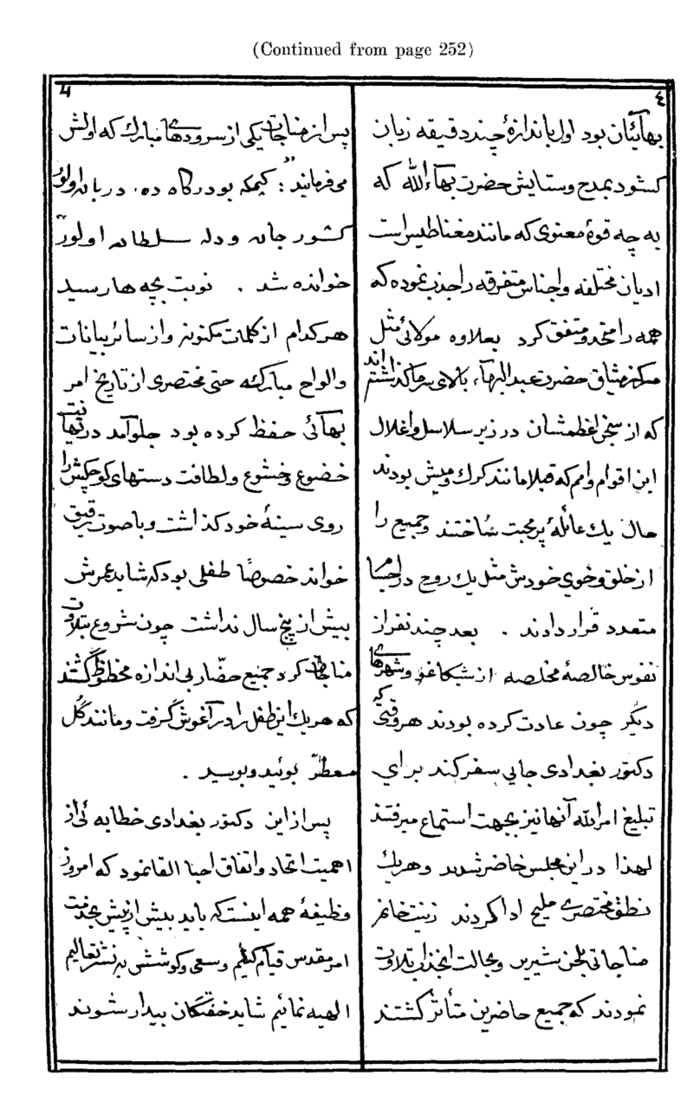 (Continued from page 252)
٤
بهائیان بود اول باندازهٔ چند دقیقه زبان
کشود بمدح وستایش حضرت بهاءالله که
به چه قوهٔ معنوی که مانند مغناطیس است
ادیان مختلفه واجناس متفرقه را جذب نموده که
همه را متحد و متفق کرد بعلاوه مولائی مثل
مرکز میثاق حضرت عبدالبهآء بالای سر ما گذاشته اند
که از سجن اعظمشان در زیر سلاسل واغلال
این اقوام وامم که قبلا مانند کرک ومیش بودند
حال یک عائلهٔ پر محبت ساختند وجمیع را
از خلق وخوی خودش مثل یک روح در اجسام
متعدد قرار دادند . بعد چند نفر از
نفوس خالصهٔ مخلصه از شیکاغو وشهرهای
دیکر چون عادت کرده بودند هر وقتی که
دکتور بغدادی جایی سفر کند برای
تبلیغ امرالله آنها نیز بجهت استماع میرفتند
لهذا در این مجلس حاضر شدند وهر یک
نطق مختصری ملیح ادا کردند زینت خانم
مناجاتی بلحن شیرین وبحالت انجذاب تلاوت
نمودند که جمیع حاضرین متأثر کشتند
۵
پس از مناجات یکی از سرودهای مبارک که اولش
میفرمایند : " کیمکه بو درکاه ده، دربان اولور
کشور جان ودله سلطان اولور "
خوانده شد . نوبت بچه ها رسید
هر کدام از کلمات مکنونه واز سائر بیانات
والواح مبارکه حتی مختصری از تاریخ امر
بهائی حفظ کرده بود جلو آمد در نهایت
خضوع وخشوع ولطافت دستهای کوچکش را
روی سینهٔ خود کذاشت وبا صوت رقیق
خواند خصوصًا طفلی بود که شاید عمرش
بیش از پنج سال نداشت چون شروع بتلاوت
مناجات کرد جمیع حضّار بی اندازه محظوظ کشتند
که هر یک این طفل را در آغوش کرفت ومانند کُل
معطّر بوئید وبوسید .
پس از این دکتور بغدادی خطابه ئی از
اهمیت اتحاد واتفاق احبا القا نمود که امروز
وظیفهٔ همه اینست که باید بیش از پیش بخدمت
امر مقدس قیام کنیم وسعی وکوشش به نشر تعالیم
الهیه نمائیم شاید خفتکان بیدار شوند